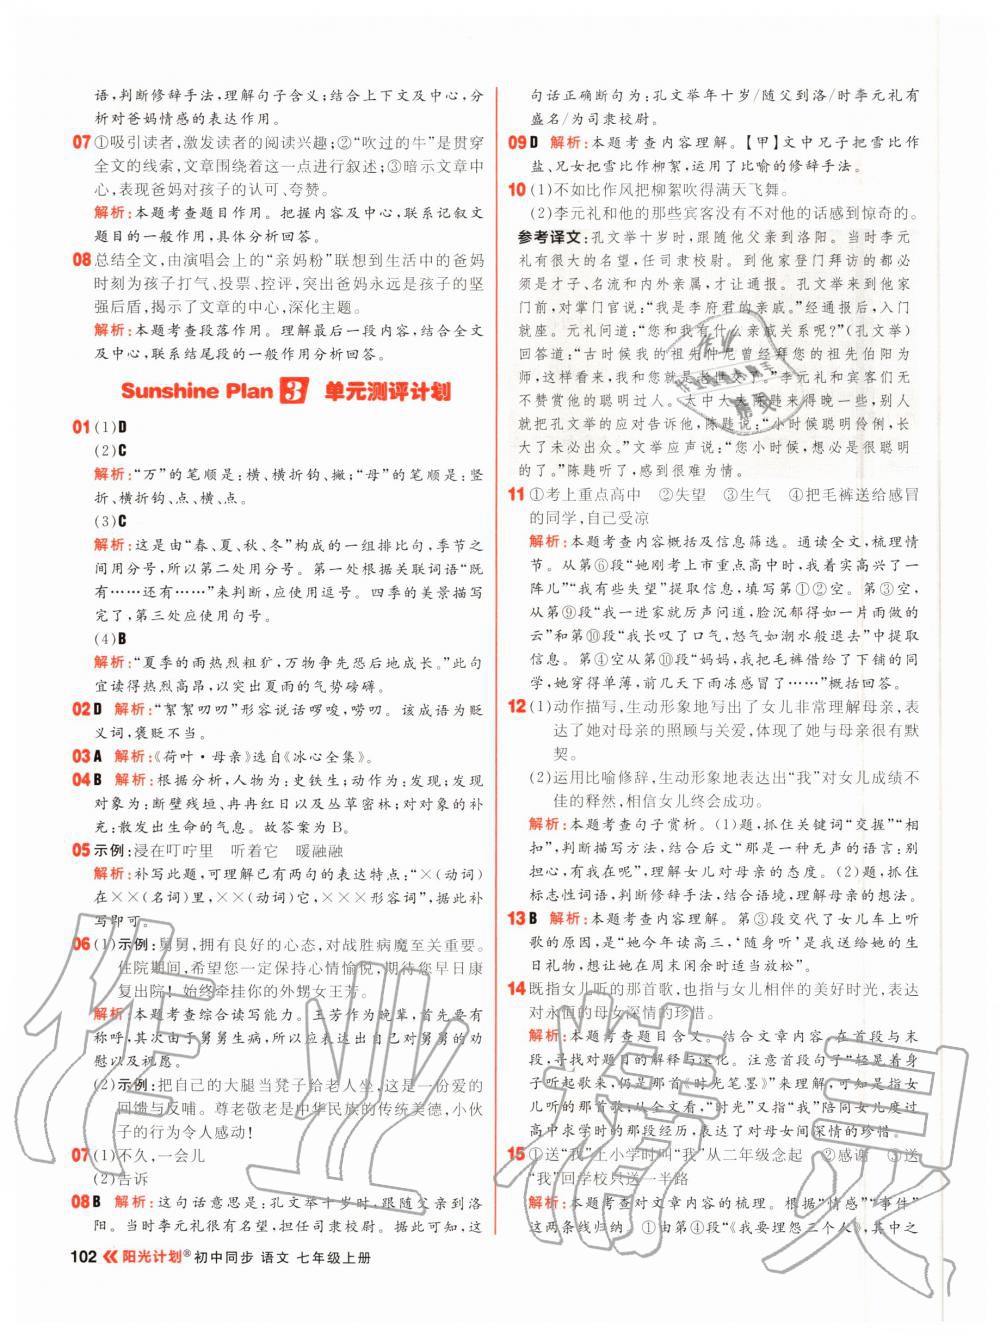 语,判断修辞手法,理解句子含义;结合上下文及中心,分
析对爸妈情感的表达作用。
07 ①吸引读者,激发读者的阅读兴趣;②“吹过的牛”是贯穿
全文的线索,文章围绕着这一点进行叙述;③暗示文章中
心,表现爸妈对孩子的认可、夸赞。
解析:本题考查题目作用。把握内容及中心,联系记叙文
题目的一般作用,具体分析回答。
08 总结全文,由演唱会上的“亲妈粉”联想到生活中的爸妈
时刻为孩子打气、投票、控评,突出爸妈永远是孩子的坚
强后盾,揭示了文章的中心,深化主题。
解析:本题考查段落作用。理解最后一段内容,结合全文
及中心,联系结尾段的一般作用分析回答。
Sunshine Plan 3 单元测评计划
01 (1)D
(2)C
解析:“万”的笔顺是:横、横折钩、撇;“母”的笔顺是:竖
折、横折钩、点、横、点。
(3)C
解析:这是由“春、夏、秋、冬”构成的一组排比句,季节之
间用分号,所以第二处用分号。第一处根据关联词语“既
有……还有……”来判断,应使用逗号。四季的美景描写
完了,第三处应使用句号。
(4)B
解析:“夏季的雨热烈粗犷,万物争先恐后地成长。”此句
宜读得热烈高昂,以突出夏雨的气势磅礴。
02 D 解析:“絮絮叨叨”形容说话啰唆,唠叨。该成语为贬
义词,褒贬不当。
03 A 解析:《荷叶·母亲》选自《冰心全集》。
04 B 解析:根据分析,人物为:史铁生;动作为:发现;发现
对象为:断壁残垣、冉冉红日以及丛草密林;对对象的补
充:散发出生命的气息。故答案为B。
05 示例:浸在叮咛里 听着它 暖融融
解析:补写此题,可理解已有两句的表达特点:“×(动词)
在××(名词)里,××(动词)它,×××形容词”,据此补
写即可。
06 (1)示例:舅舅,拥有良好的心态,对战胜病魔至关重要。
住院期间,希望您一定保持心情愉悦,期待您早日康
复出院!始终牵挂你的外甥女王芳。
解析:本题考查综合读写能力。王芳作为晚辈,首先要有
称呼,其次由于舅舅生病,所以应表达出自己对舅舅的劝
慰以及祝愿。
(2)示例:把自己的大腿当凳子给老人坐,这是一份爱的
回馈与反哺。尊老敬老是中华民族的传统美德,小伙
子的行为令人感动!
07 (1)不久,一会儿
(2)告诉
08 B 解析:这句话意思是:孔文举十岁时,跟随父亲到洛
阳。当时李元礼很有名望,担任司隶校尉。据此可知,这
102 阳光计划® 初中同步 语文 七年级上册
句话正确断句为:孔文举年十岁/随父到洛/时李元礼有
盛名/为司隶校尉。
09 D 解析:本题考查内容理解。【甲】文中兄子把雪比作
盐、兄女把雪比作柳絮,运用了比喻的修辞手法。
10 (1)不如比作风把柳絮吹得满天飞舞。
(2)李元礼和他的那些宾客没有不对他的话感到惊奇的。
参考译文:孔文举十岁时,跟随他父亲到洛阳。当时李元
礼有很大的名望,任司隶校尉。到他家登门拜访的都必
须是才子、名流和内外亲属,才让通报。孔文举来到他家
门前,对掌门官说:“我是李府君的亲戚。”经通报后,入门
就座。元礼问道:“您和我有什么亲戚关系呢?”(孔文举)
回答道:“古时候我的祖先仲尼曾经拜您的祖先伯阳为
师,这样看来,
李元礼和宾客们无
不赞赏他的聪明过人。太中大夫陈韪来得晚一些,别人
就把孔文举的应对告诉他,陈韪说:“小时候聪明伶俐,长
大了未必出众。”文举应声说:“您小时候,想必是很聪明
的了。”陈韪听了,感到很难为情。
11 ①考上重点高中 ②失望 ③生气 ④把毛裤送给感冒
的同学,自己受凉
解析:本题考查内容概括及信息筛选。通读全文,梳理情
节。从第⑥段“她刚考上市重点高中时,我着实高兴了一
阵儿”“我有些失望”提取信息,填写第①②空。第③空,
从第⑨段“我一进家就厉声问道,脸沉郁得如一片雨做的
云”和第⑩段“我长叹了口气,怒气如潮水般退去”中提取
信息。第④空从第⑩段“妈妈,我把毛裤借给了下铺的同
学,她穿得单薄,前几天下雨冻感冒了……”概括回答。
12 (1)动作描写,生动形象地写出了女儿非常理解母亲,表
达了她对母亲的照顾与关爱,体现了她与母亲很有默
契。
(2)运用比喻修辞,生动形象地表达出“我”对女儿成绩不
佳的释然,相信女儿终会成功。
解析:本题考查句子赏析。(1)题,抓住关键词“交握”“相
扣”,判断描写方法,结合后文“那是一种无声的语言:别
担心,有我在呢”,理解女儿对母亲的态度。(2)题,抓住
标志性词语,判断修辞手法,结合语境,理解母亲的想法。
13 B 解析:本题考查内容理解。第③段交代了女儿车上听
歌的原因,是“她今年读高三,‘随身听’是我送给她的生
日礼物,想让她在周末闲余时适当放松”。
14 既指女儿听的那首歌,也指与女儿相伴的美好时光,表达
对永恒的母女深情的珍惜。
解析:本题考查题目含义。结合文章内容,在首段与末
段,寻找对题目的解释与深化。注意首段句子“轻晃着身
子听起歌来,仍是那首《时光笔墨》”来理解,可知是指女
儿听的那首歌;从全文看,“时光”又指“我”陪同女儿度过
高中求学的那些时光与经历,表达对母女间深情的珍惜。
15 ①送“我”上小学时叫“我”从二年级念起 ②感谢 ③送
“我”回学校只送一半路
解析:本题考查对文章内容的梳理。根据“情感”“事件”
这两条线归纳。①由第④段“《我要埋怨三个人》,其中之